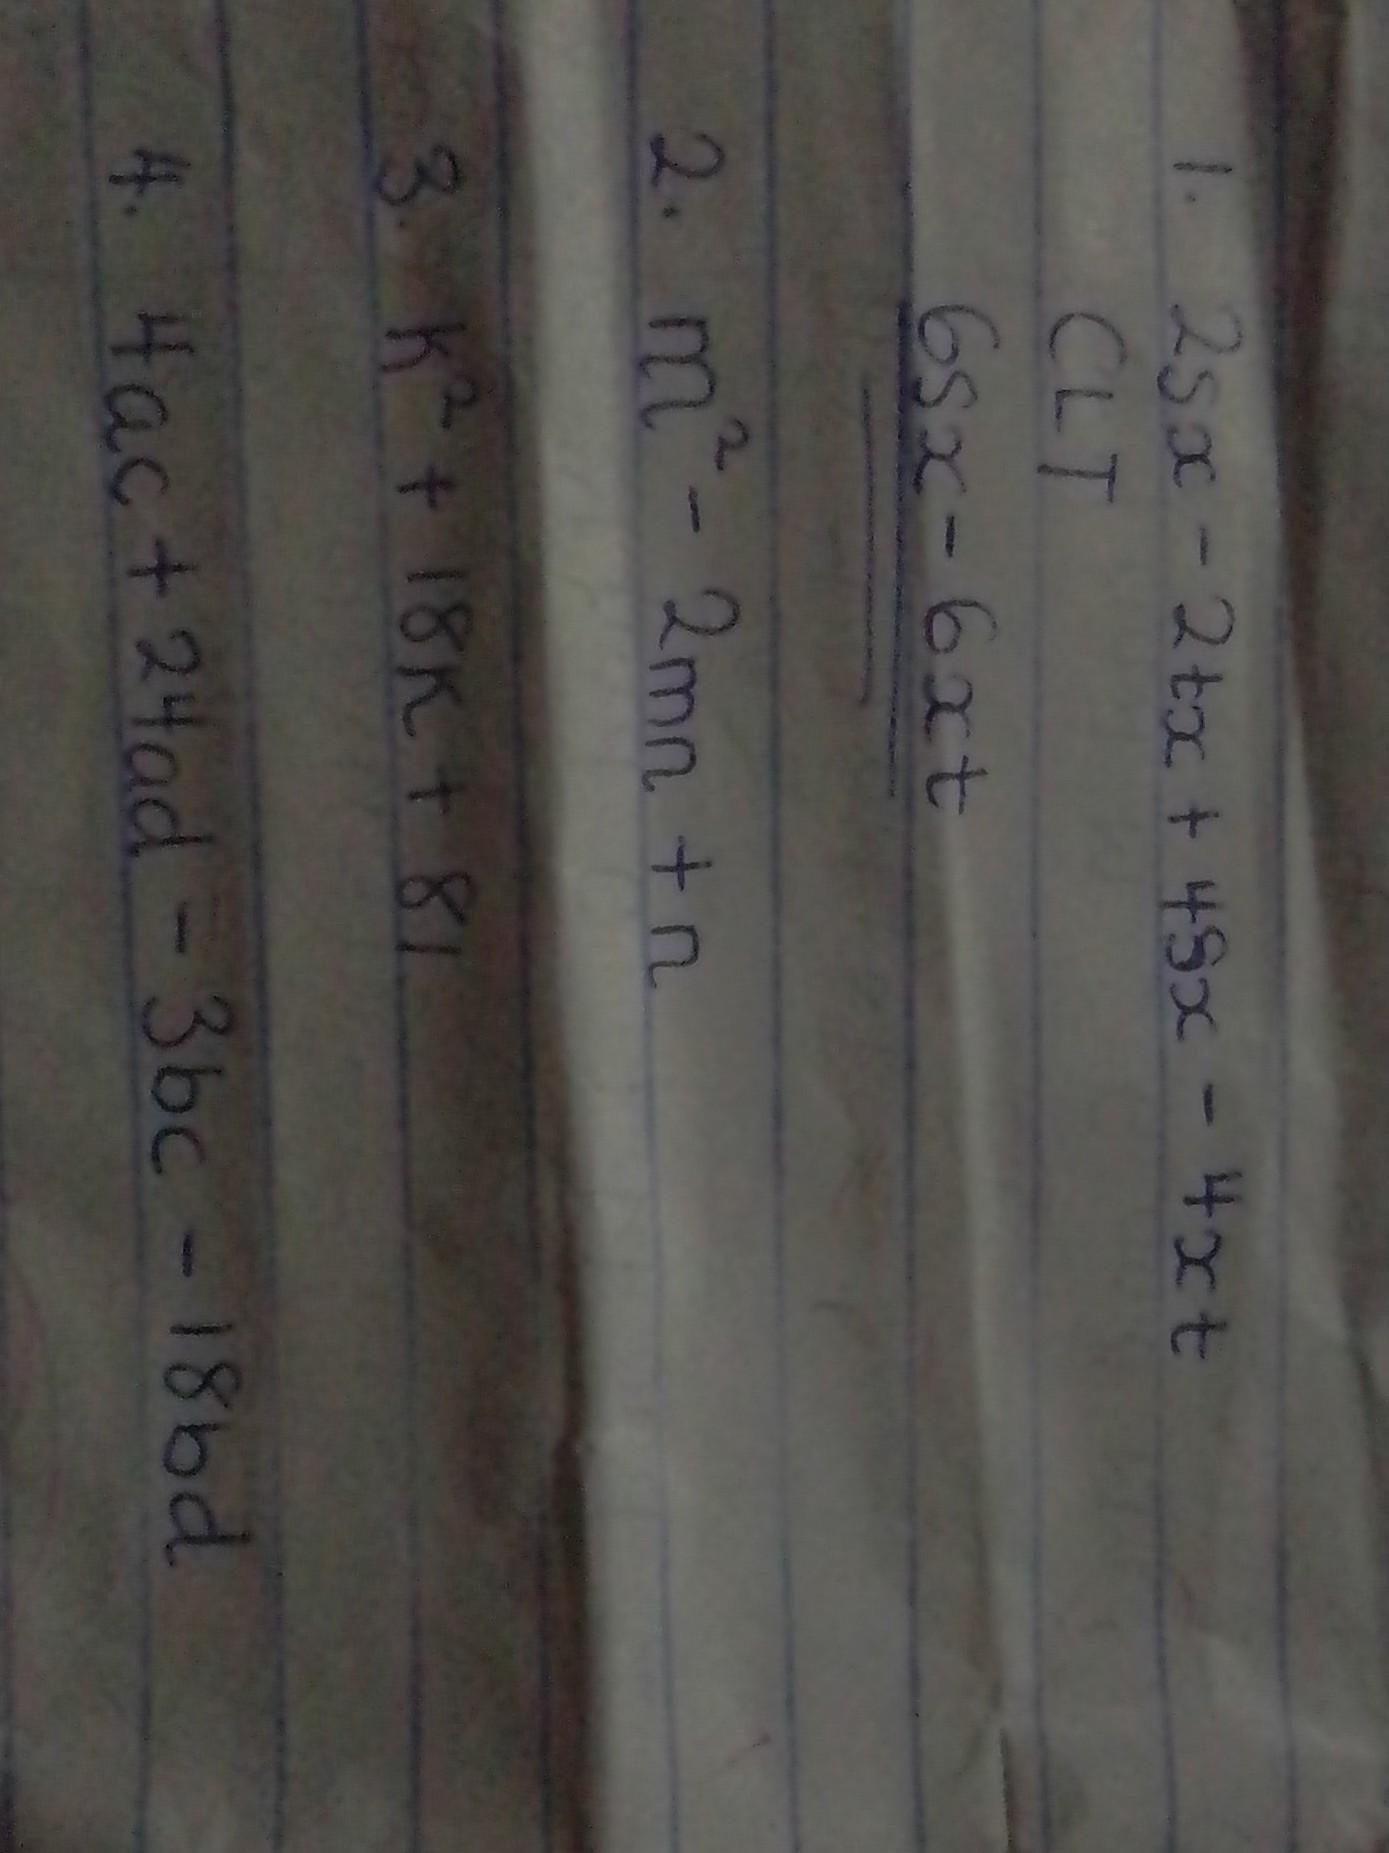 1. 2sx - 2tx + 4sx - 4xt
CLT
6sx - 6xt
2. m² - 2mn + n
3. k² + 18k + 81
4. 4ac + 24ad - 3bc - 18bd